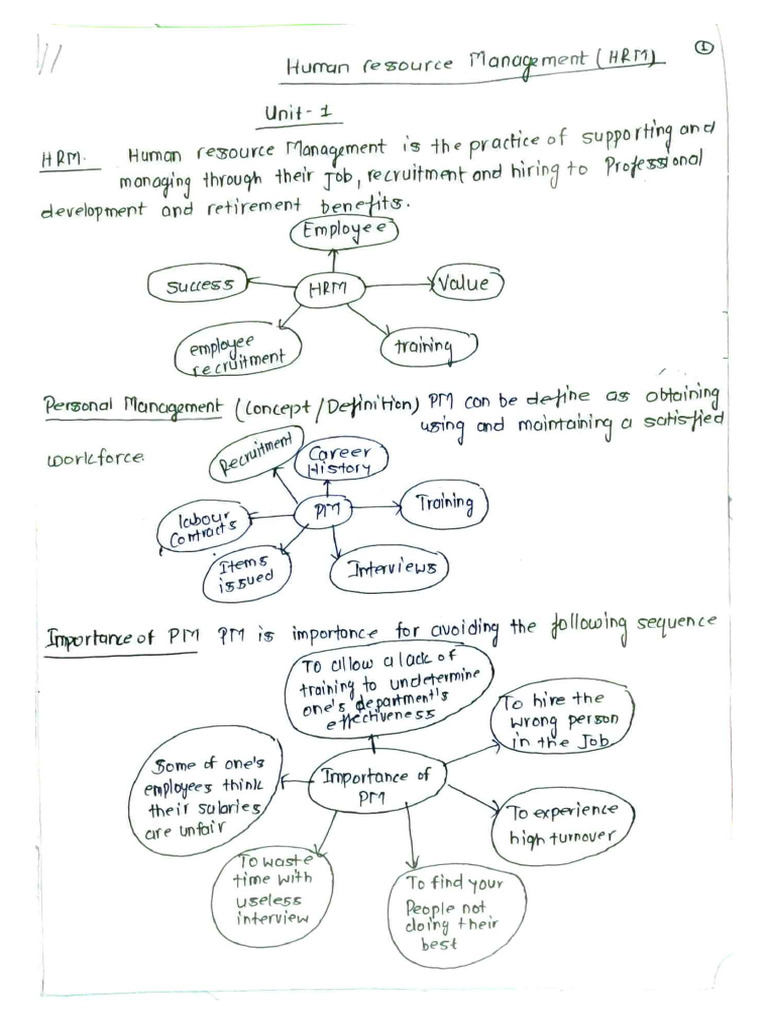 1
Human resource Management (HRM)
Unit-1
HRM. Human resource Management is the practice of supporting and
managing through their Job, recruitment and hiring to Professional
development and retirement benefits.
Employee
Success
HRM
Value
employee
recruitment
training
Personal Management (Concept/Definition) PM can be define as obtaining
using and maintaining a satisfied
workforce.
Recruitment
Career
History
Labour
Contracts
PM
Training
Items
issued
Interviews
Importance of PM PM is importance for avoiding the following sequence
To allow a lack of
training to undetermine
one's department's
effectiveness
To hire the
wrong person
in the Job
Some of one's
employees think
their salaries
are unfair
Importance of
PM
To experience
high turnover
To waste
time with
useless
interview
To find your
People not
doing their
best